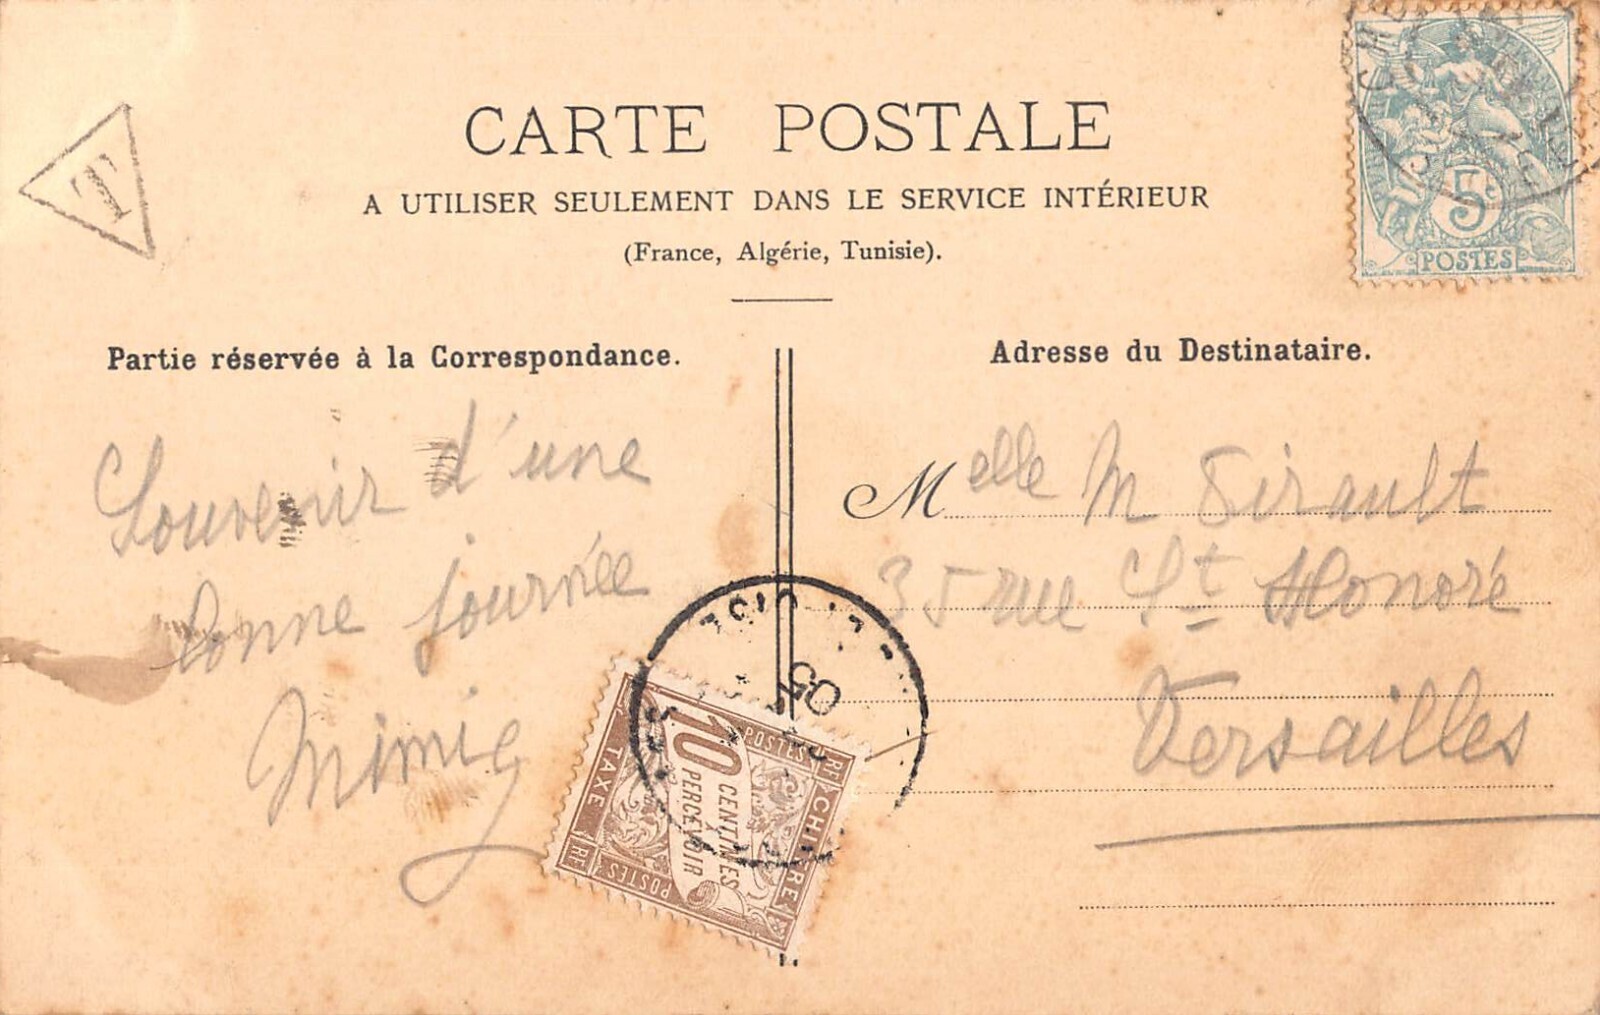 T
CARTE POSTALE
A UTILISER SEULEMENT DANS LE SERVICE INTÉRIEUR
(France, Algérie, Tunisie).
5c
POSTES
Partie réservée à la Correspondance.
Souvenir d'une
bonne journée
Mimie
Adresse du Destinataire.
Melle M Sirault
35 rue St Honoré
Versailles
05
CHIFFRE
TAXE
POSTES
POSTES
RF
RF
10
CENTIMES
À
PERCEVOIR